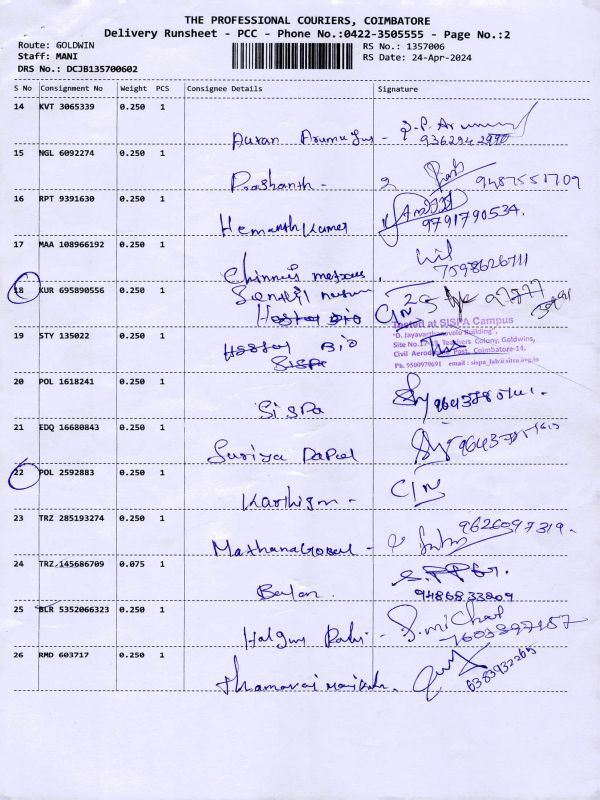 THE PROFESSIONAL COURIERS, COIMBATORE
Delivery Runsheet - PCC - Phone No.:0422-3505555 - Page No.:2
Route: GOLDWIN
RS No.: 1357006
Staff: MANI
RS Date: 24-Apr-2024
DRS No.: DCJB135700602
S No Consignment No Weight PCS Consignee Details Signature
14 KVT 3065339 0.250 1
9362942990
15 NGL 6092274 0.250 1
Prashanth - 9487551709
16 RPT 9391630 0.250 1
Hemanth Kumar 9791790534.
17 MAA 108966192 0.250 1
7598626711
18 KUR 695890556 0.250 1
C/N
19 STY 135022 0.250 1
at SISPA Campus
"D. Jayavarthanavelu Building",
Site No. Teachers Colony, Goldwins,
Civil Aerodrome Post, Coimbatore-14.
Ph. 9500979691 email : sispa_lab@sitra.org.in
Bio
SISPA
20 POL 1618241 0.250 1
SISPA
21 EDQ 16680843 0.250 1
Suriya
22 POL 2592883 0.250 1
C/N
23 TRZ 285193274 0.250 1
MathanaGopal - 9626097319.
24 TRZ 145686709 0.075 1
Balan. 9486833209
25 BLR 5352066323 0.250 1
7603897157
26 RMD 603717 0.250 1
6383932265